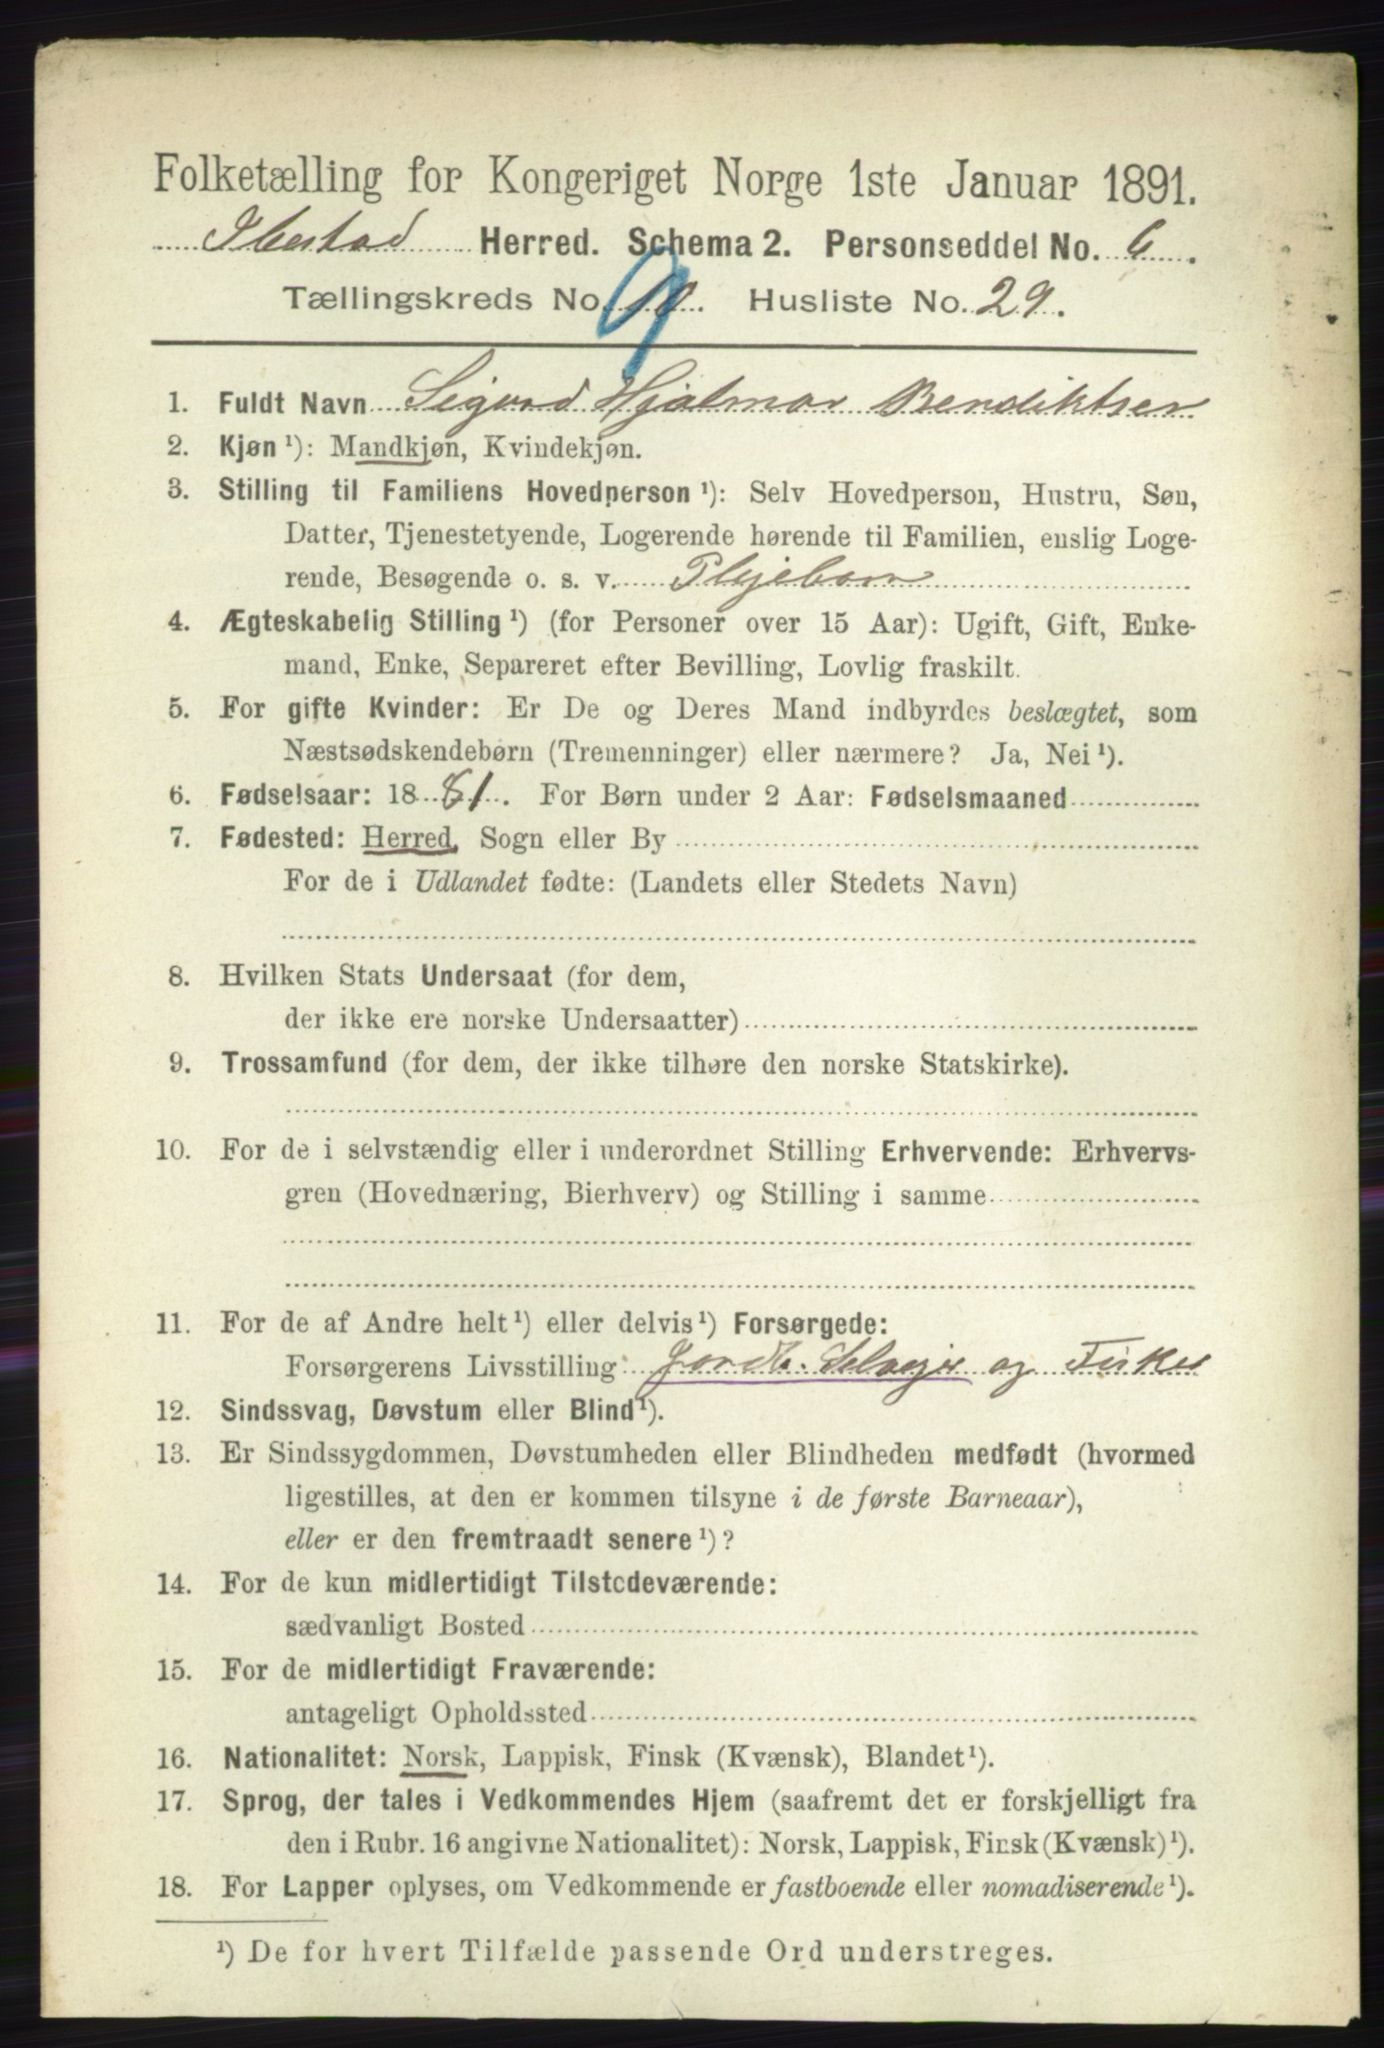 Folketælling for Kongeriget Norge 1ste Januar 1891.
Ibestad Herred. Schema 2. Personseddel No. 6.
Tællingskreds No. 10. 9 Husliste No. 29.
1. Fuldt Navn Sigurd Hjalmar Bendiktsen
2. Kjøn ¹): Mandkjøn, Kvindekjøn.
3. Stilling til Familiens Hovedperson ¹): Selv Hovedperson, Hustru, Søn,
Datter, Tjenestetyende, Logerende hørende til Familien, enslig Loge-
rende, Besøgende o. s. v. Plejebarn
4. Ægteskabelig Stilling ¹) (for Personer over 15 Aar): Ugift, Gift, Enke-
mand, Enke, Separeret efter Bevilling, Lovlig fraskilt.
5. For gifte Kvinder: Er De og Deres Mand indbyrdes beslægtet, som
Næstsødskendebørn (Tremenninger) eller nærmere? Ja, Nei ¹).
6. Fødselsaar: 1881. For Børn under 2 Aar: Fødselsmaaned
7. Fødested: Herred, Sogn eller By
For de i Udlandet fødte: (Landets eller Stedets Navn)
8. Hvilken Stats Undersaat (for dem,
der ikke ere norske Undersaatter)
9. Trossamfund (for dem, der ikke tilhøre den norske Statskirke).
10. For de i selvstændig eller i underordnet Stilling Erhvervende: Erhvervs-
gren (Hovednæring, Bierhverv) og Stilling i samme
11. For de af Andre helt ¹) eller delvis ¹) Forsørgede:
Forsørgerens Livsstilling Jordb. Selvejer og Fisker
12. Sindssvag, Døvstum eller Blind ¹).
13. Er Sindssygdommen, Døvstumheden eller Blindheden medfødt (hvormed
ligestilles, at den er kommen tilsyne i de første Barneaar),
eller er den fremtraadt senere ¹)?
14. For de kun midlertidigt Tilstedeværende:
sædvanligt Bosted
15. For de midlertidigt Fraværende:
antageligt Opholdssted
16. Nationalitet: Norsk, Lappisk, Finsk (Kvænsk), Blandet ¹).
17. Sprog, der tales i Vedkommendes Hjem (saafremt det er forskjelligt fra
den i Rubr. 16 angivne Nationalitet): Norsk, Lappisk, Finsk (Kvænsk) ¹).
18. For Lapper oplyses, om Vedkommende er fastboende eller nomadiserende ¹).
¹) De for hvert Tilfælde passende Ord understreges.